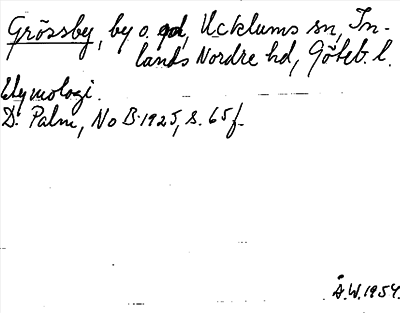 Grössby, by o. gd, Ucklums sn, In-
lands Nordre hd, Göteb. l.
Etymologi.
D. Palm, NoB 1925, s. 65 f.
Å.W. 1954.